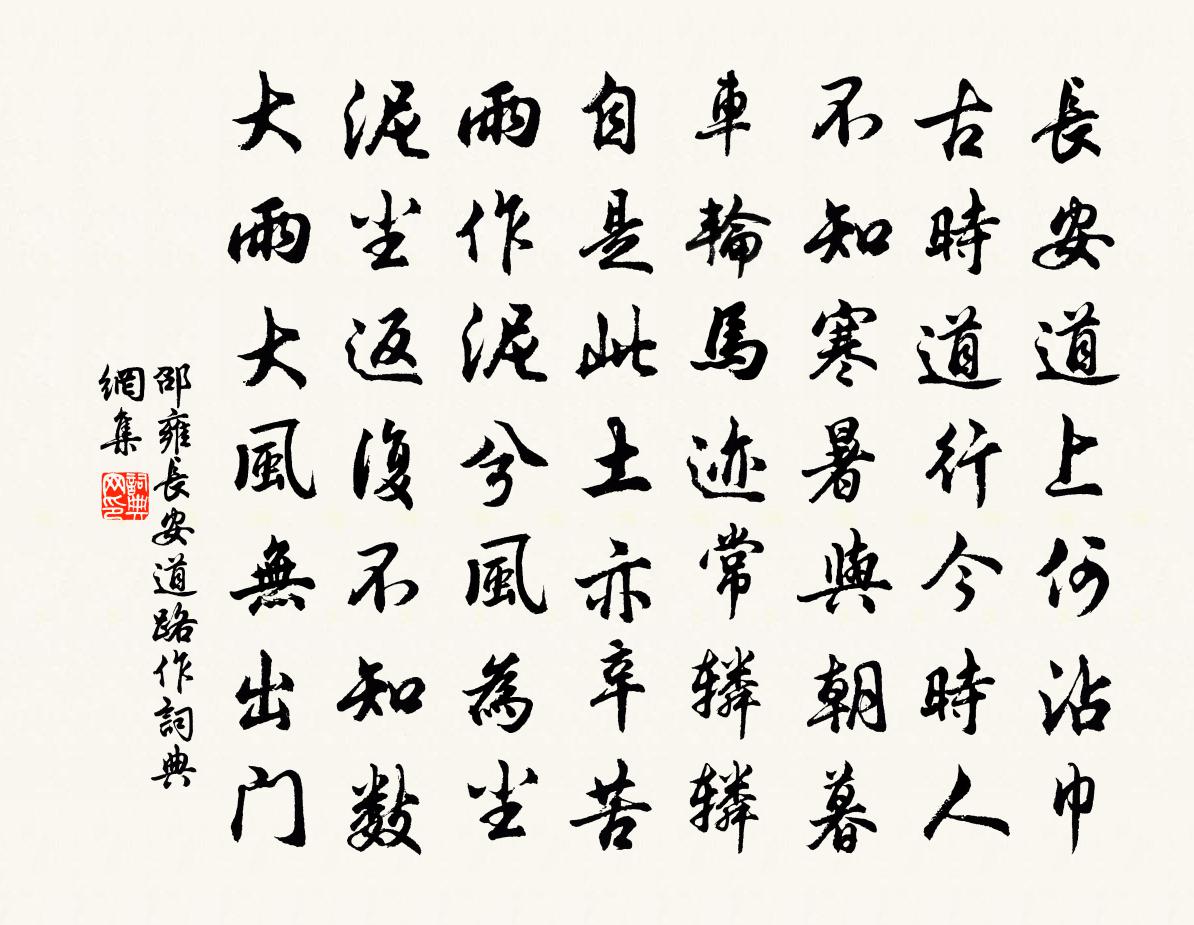 長安道上何沾巾
古時道行今時人
不知寒暑與朝暮
車輪馬迹常轔轔
自是此土亦辛苦
雨作泥兮風為尘
泥尘返復不知數
大雨大風無出门
邵雍長安道路作詞典
網集
詞典
网印